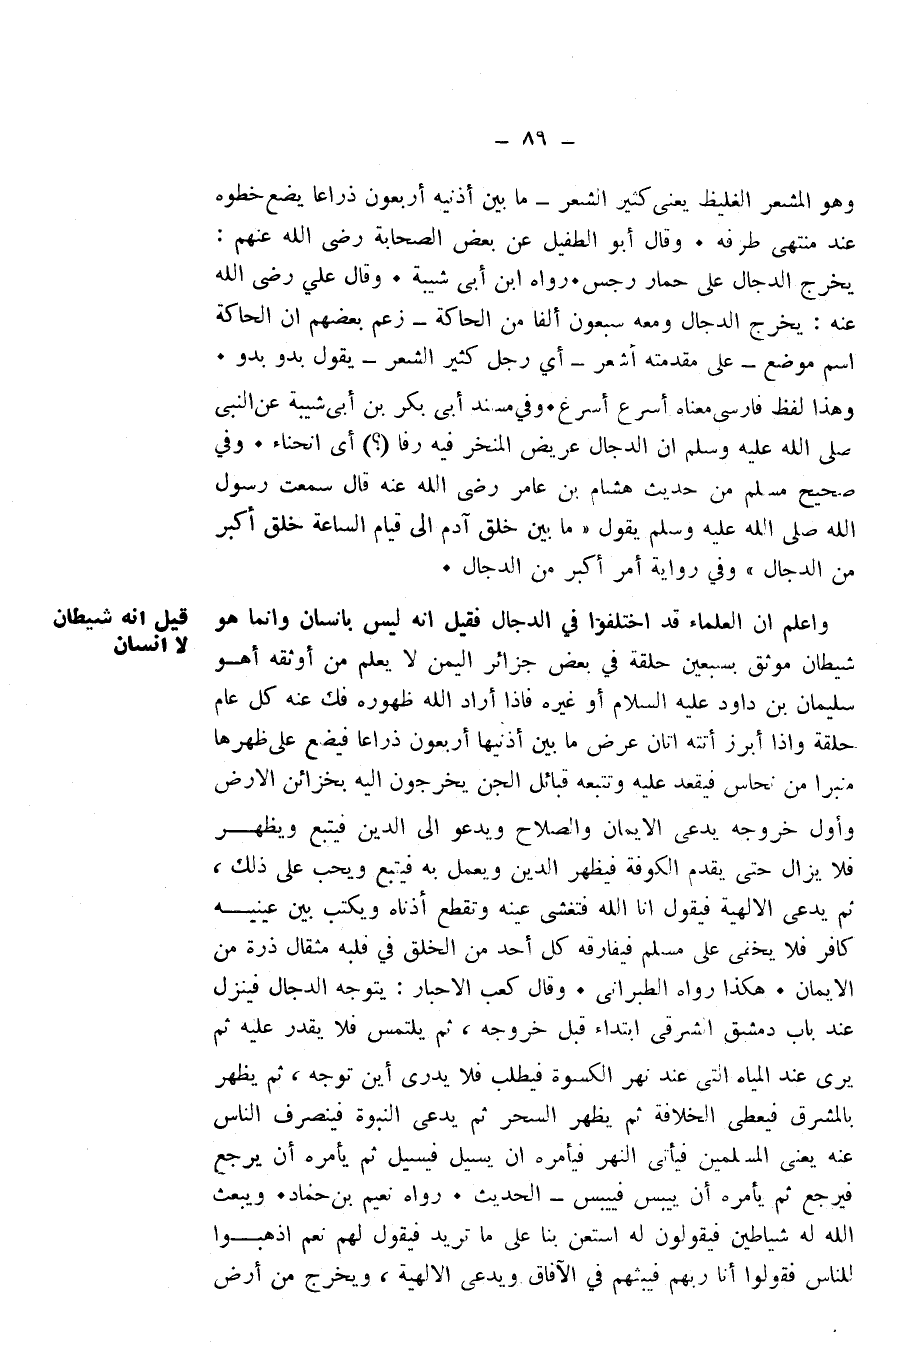 – ٨٩ –
وهو المشعر الغليظ يعنى كثير الشعر – ما بين أذنيه أربعون ذراعا يضع خطوه
عند منتهى طرفه • وقال أبو الطفيل عن بعض الصحابة رضى الله عنهم :
يخرج الدجال على حمار رجس • رواه ابن أبى شيبة • وقال علي رضى الله
عنه : يخرج الدجال ومعه سبعون ألفا من الحاكة – زعم بعضهم ان الحاكة
اسم موضع – على مقدمته أشعر – أي رجل كثير الشعر – يقول بدو بدو •
وهذا لفظ فارسى معناه أسرع أسرع • وفي مسند أبى بكر بن أبى شيبة عن النبي
صلى الله عليه وسلم ان الدجال عريض المنخر فيه رفا (؟) أى انحناء • وفي
صحيح مسلم من حديث هشام بن عامر رضى الله عنه قال سمعت رسول
الله صلى الله عليه وسلم يقول « ما بين خلق آدم الى قيام الساعة خلق أكبر
من الدجال » وفي رواية أمر أكبر من الدجال •
واعلم ان العلماء قد اختلفوا في الدجال فقيل انه ليس بانسان وانما هو
قيل انه شيطان
لا انسان
شيطان موثق بسبعين حلقة في بعض جزائر اليمن لا يعلم من أوثقه أهـو
سليمان بن داود عليه السلام أو غيره فاذا أراد الله ظهوره فك عنه كل عام
حلقة واذا أبرز أتته اتان عرض ما بين أذنيها أربعون ذراعا فيضع على ظهرها
منبرا من نحاس فيقعد عليه وتتبعه قبائل الجن يخرجون اليه بخزائن الارض
وأول خروجه يدعى الايمان والصلاح ويدعو الى الدين فيتبع ويظهـر
فلا يزال حتى يقدم الكوفة فيظهر الدين ويعمل به فيتبع ويحب على ذلك ،
ثم يدعى الالهية فيقول انا الله فتغشى عينه وتقطع أذناه ويكتب بين عينيـه
كافر فلا يخفى على مسلم فيفارقه كل أحد من الخلق في قلبه مثقال ذرة من
الايمان • هكذا رواه الطبرانى • وقال كعب الاحبار : يتوجه الدجال فينزل
عند باب دمشق الشرقى ابتداء قبل خروجه ، ثم يلتمس فلا يقدر عليه ثم
يرى عند المياه التى عند نهر الكسوة فيطلب فلا يدرى أين توجه ، ثم يظهر
بالمشرق فيعطى الخلافة ثم يظهر السحر ثم يدعى النبوة فينصرف الناس
عنه يعنى المسلمين فيأتى النهر فيأمره ان يسيل فيسيل ثم يأمره أن يرجع
فيرجع ثم يأمره أن ييبس فييبس – الحديث • رواه نعيم بن حماد • ويبعث
الله له شياطين فيقولون له استعن بنا على ما تريد فيقول لهم نعم اذهبـوا
للناس فقولوا أنا ربهم فيبثهم في الآفاق ويدعى الالهية ، ويخرج من أرض